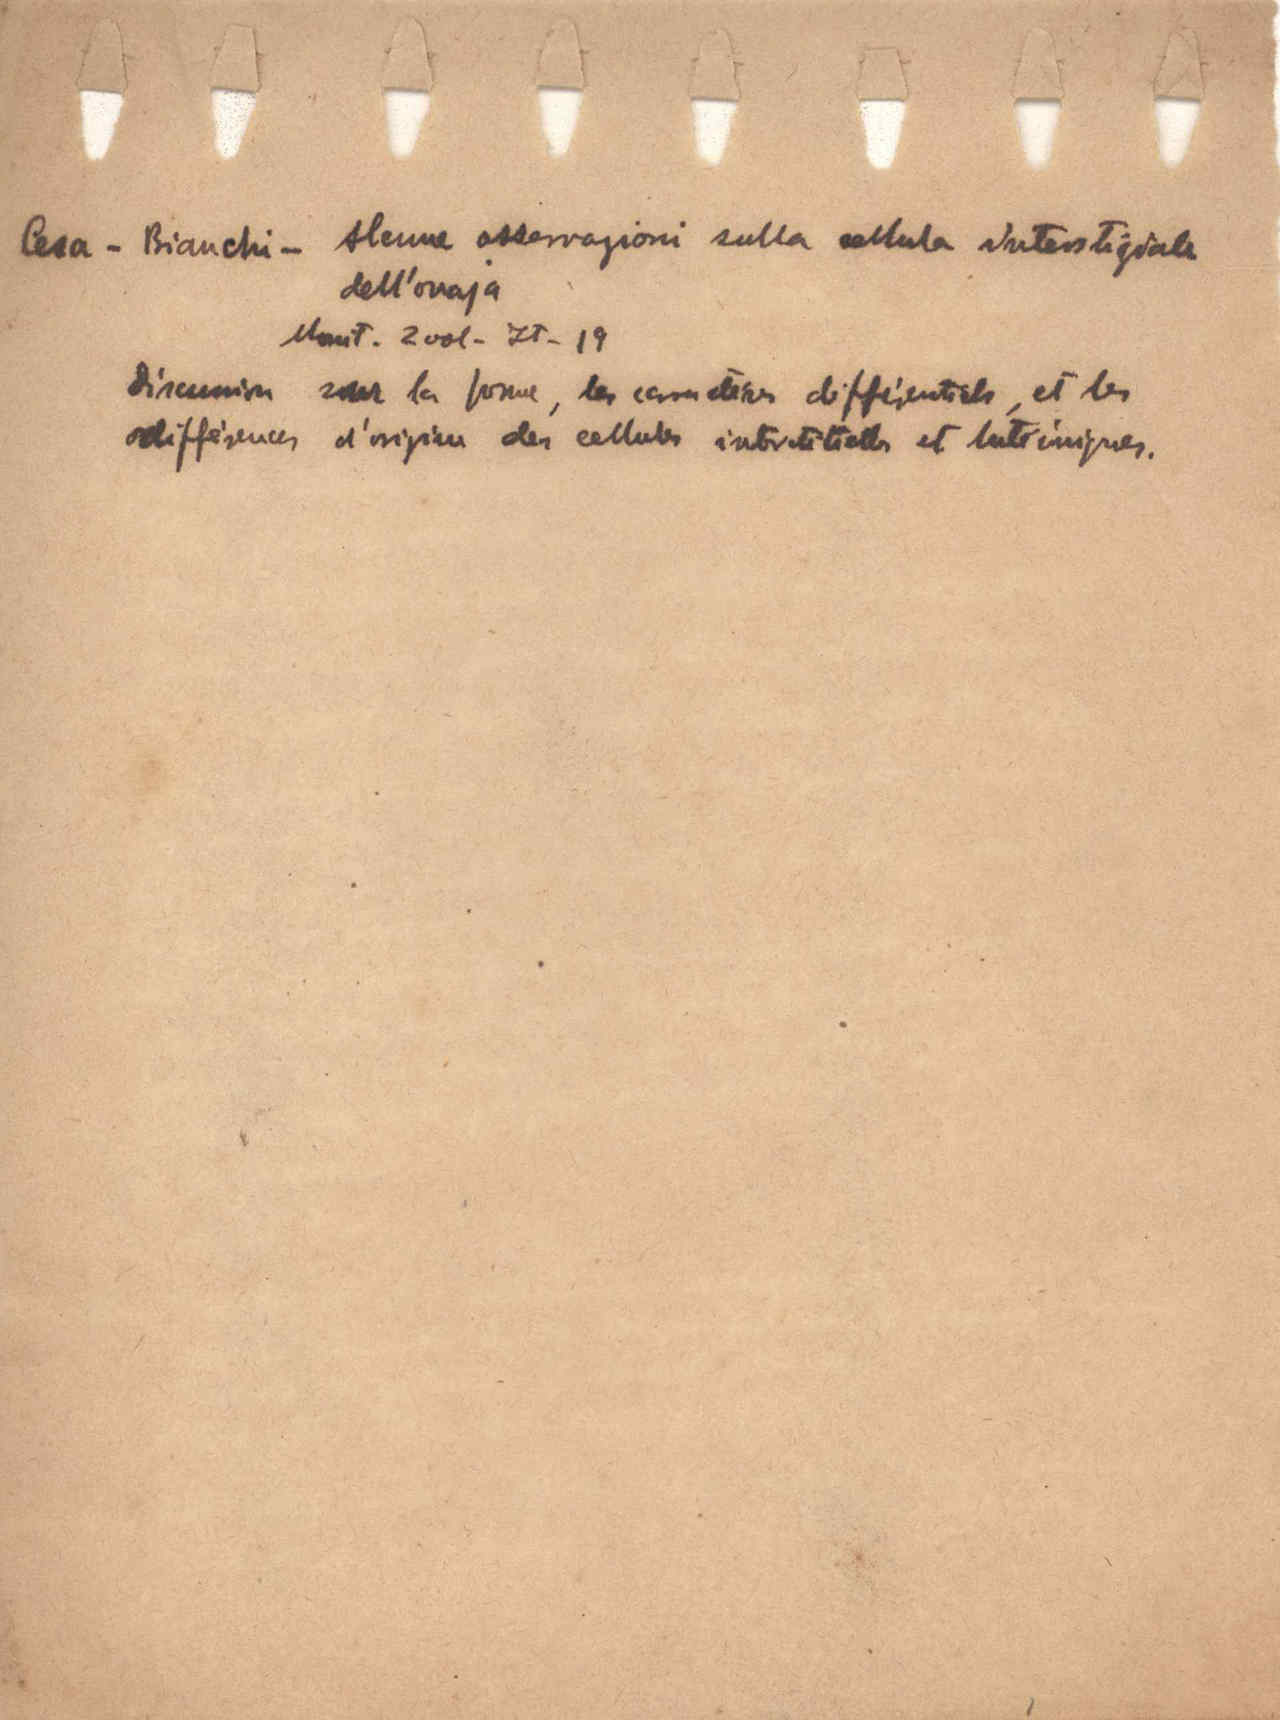 Cesa - Bianchi - Alcune osservazioni sulla cellula interstiziale
dell'ovaja
Monit. Zool - It - 19
Discussion sur la forme, les caractères différentiels, et les
différences d'origine des cellules interstitielles et lutéiniques.